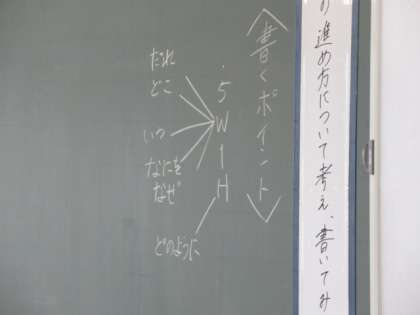 の進め方について考え、書いてみ
〈書くポイント〉
・5W1H
だれ
どこ
いつ
なにを
なぜ
どのように